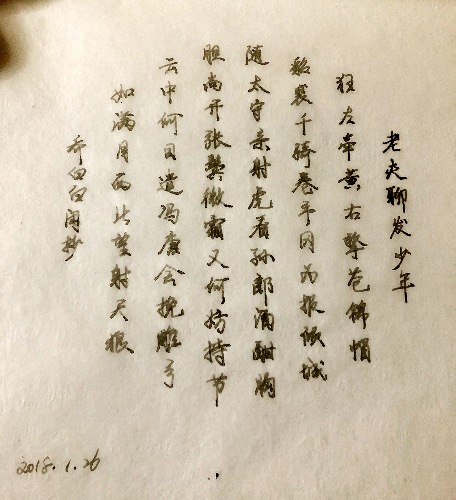 老夫聊发少年
狂左牵黄右擎苍锦帽
貂裘千骑卷平冈为报倾城
随太守亲射虎看孙郎酒酣胸
胆尚开张鬓微霜又何妨持节
云中何日遣冯唐会挽雕弓
如满月西北望射天狼
乔白白闲抄
2018.1.26